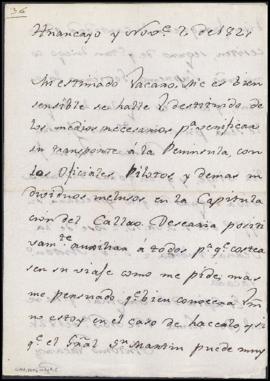 36
Huancayo y Nov.e 2 de 1821
Mi estimado Vacaro. Me es bien
sensible se halle V. destituido de
los medios necesarios p.a verificar
su transporte á la Peninsula, con
los Oficiales, Pilotos y demas in
dividuos inclusos en la Capitula
cion del Callao. Desearia positi
vam.te auxiliar á todos p.a q.e costea
sen su viaje como me pide; mas
me persuado q.e bien conocera
no estoy en el caso de hacerlo, y si
q.e el Gral S.n Martin puede muy